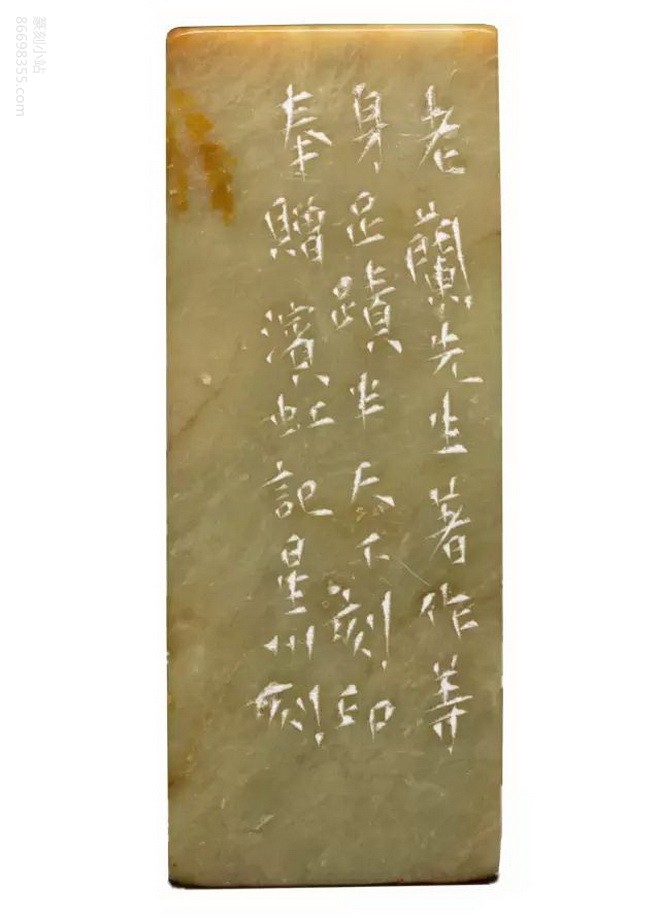 老蘭先生著作等
身足蹟半天下刻印
奉贈濱虹記星州刻
篆刻小站
86698355.com